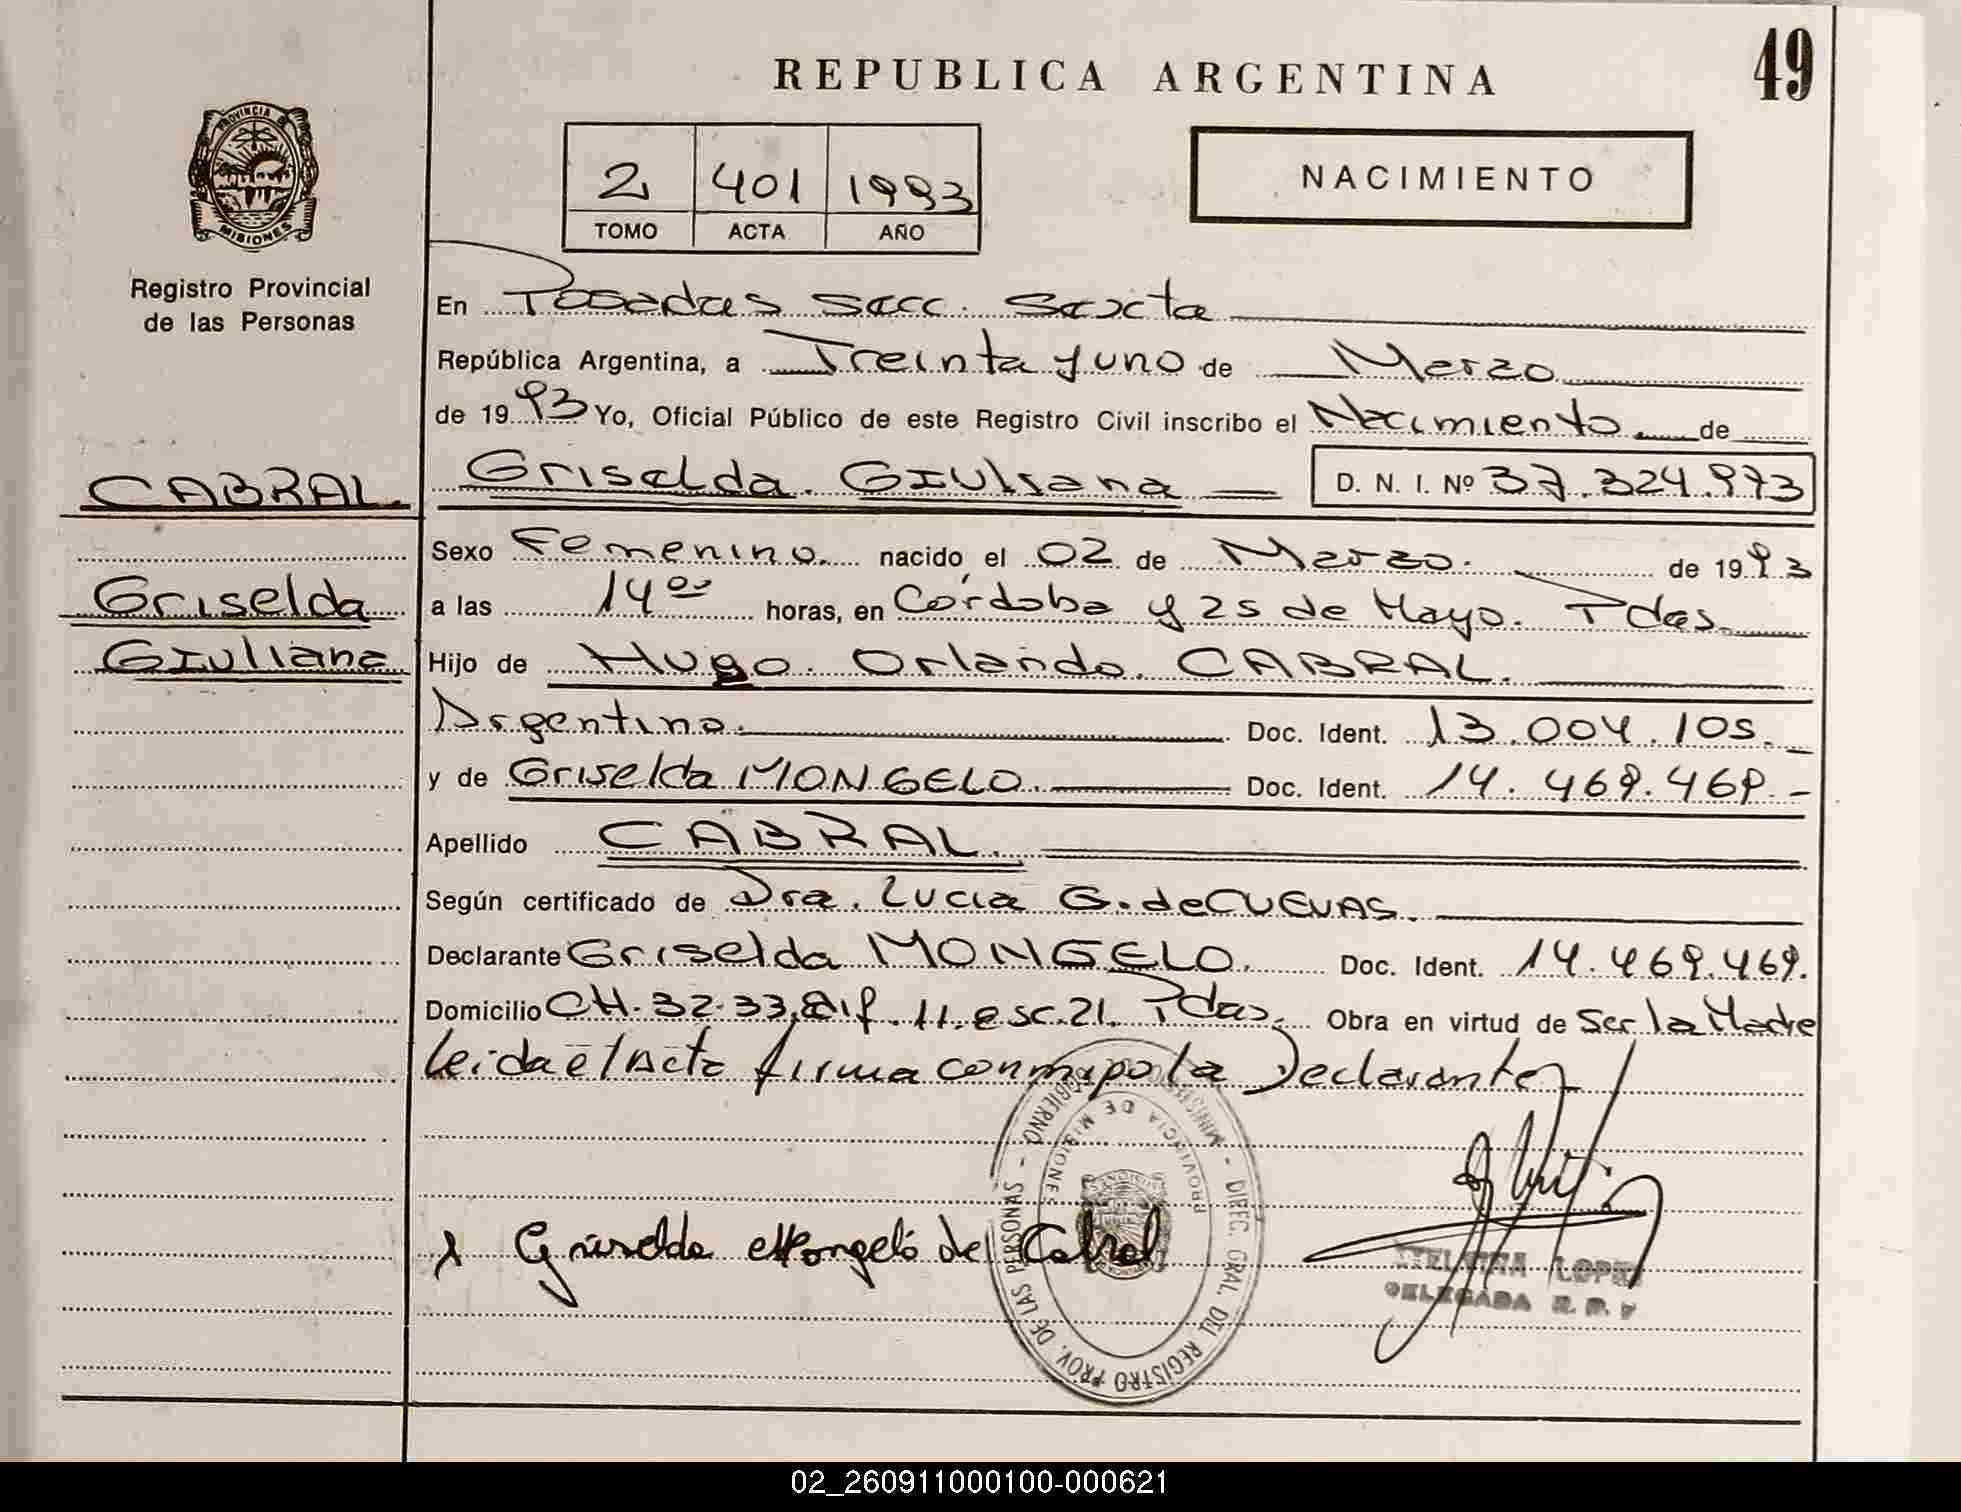 REPUBLICA ARGENTINA
49
PROVINCIA D
MISIONES
Registro Provincial
de las Personas
2 401 1993
TOMO ACTA AÑO
NACIMIENTO
En Posadas Secc. Sexta
República Argentina, a Treinta y uno de Marzo
de 1993 Yo, Oficial Público de este Registro Civil inscribo el Nacimiento de
CABRAL. Griselda Giuliana D. N. I. Nº 37.324.973
Sexo Femenino. nacido el 02 de Marzo. de 1993
Griselda a las 14 00 horas, en Córdoba y 25 de Mayo. Pdas.
Giuliana Hijo de Hugo Orlando CABRAL.
Argentino. Doc. Ident. 13.004.105.
y de Griselda MONGELO. Doc. Ident. 14.469.469.-
Apellido CABRAL.
Según certificado de Dra. Lucia G. de CUEVAS.
Declarante Griselda MONGELO. Doc. Ident. 14.469.469.
Domicilio CH. 32-33, Edif. 11. esc. 21. Pdas. Obra en virtud de Ser la Madre
leida el Acta firma conmigo la Declarante
Griselda Mongeló de Cabral
DIREC. GRAL. DEL REGISTRO PROV. DE LAS PERSONAS - MINISTERIO GOBIERNO -
PROVINCIA DE MISIONES
LOPEZ
DELEGADA R. P. P
02_260911000100-000621